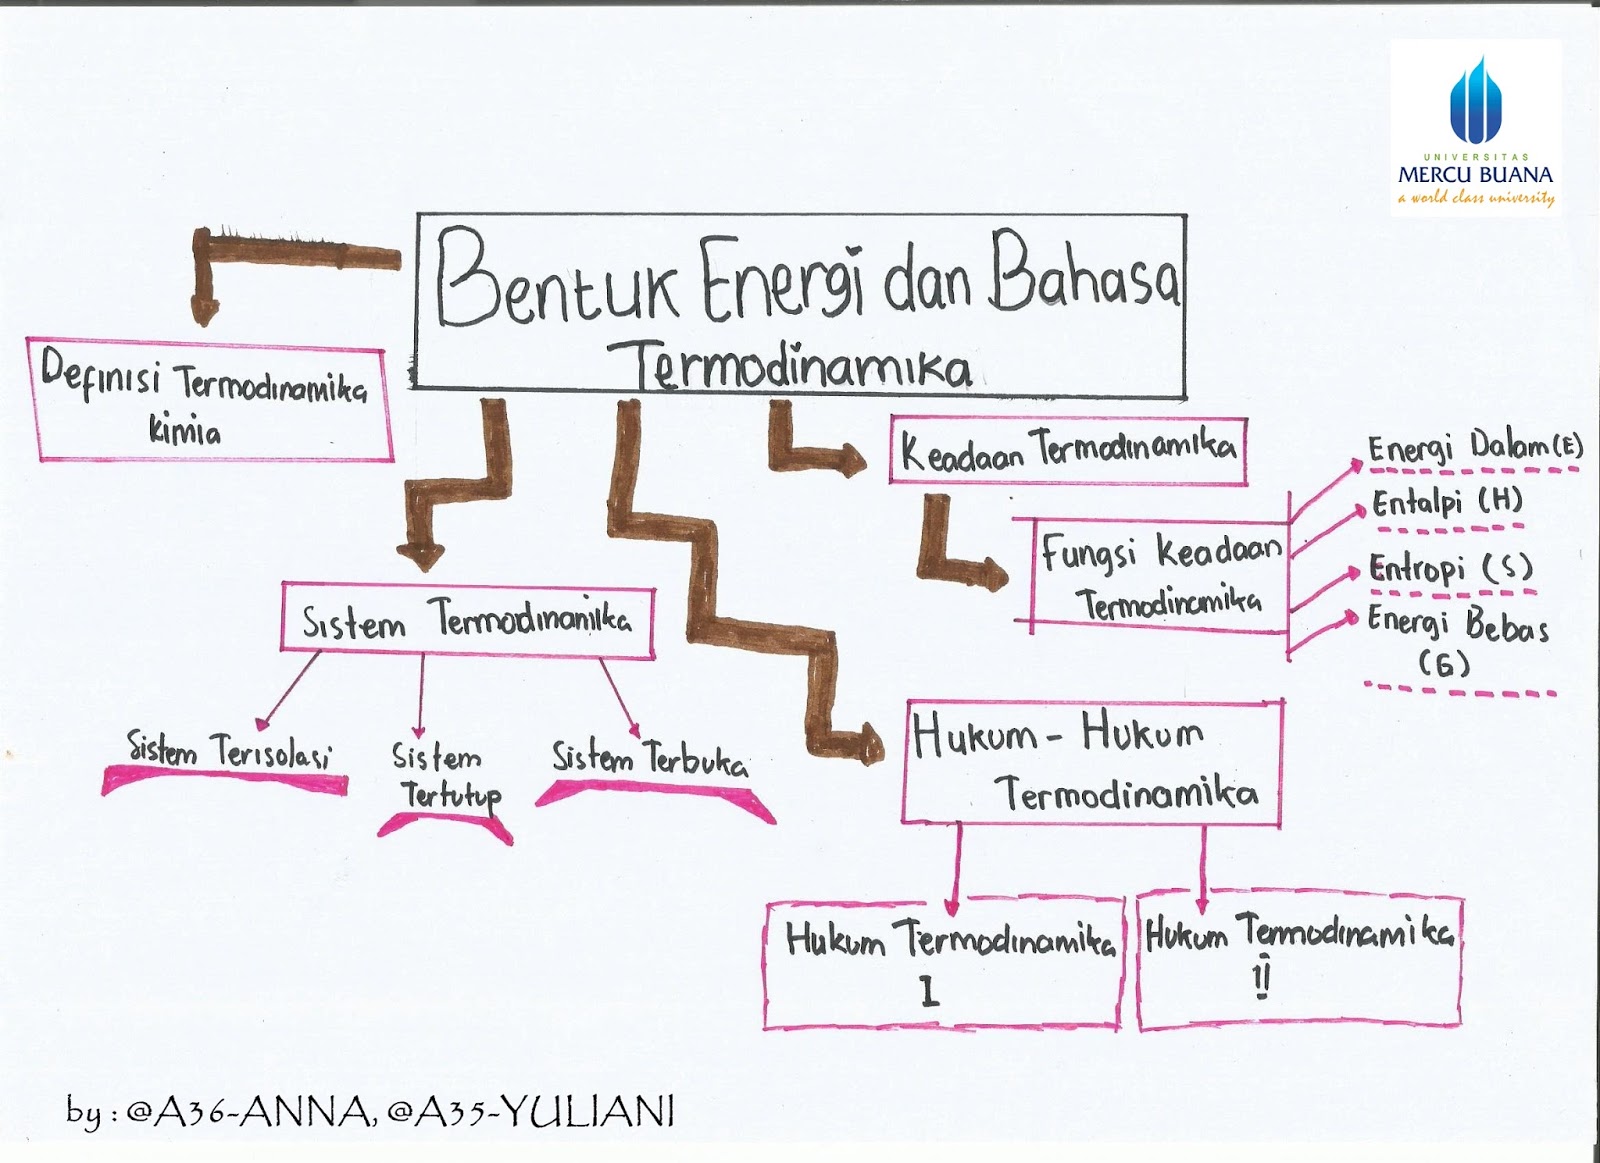 UNIVERSITAS
MERCU BUANA
a world class university
Bentuk Energi dan Bahasa
Termodinamika
Definisi Termodinamika
kimia
Keadaan Termodinamika
Fungsi Keadaan
Termodinamika
Energi Dalam (E)
Entalpi (H)
Entropi (S)
Energi Bebas
(G)
Sistem Termodinamika
Sistem Terisolasi
Sistem
Tertutup
Sistem Terbuka
Hukum - Hukum
Termodinamika
Hukum Termodinamika
I
Hukum Termodinamika
II
by : @A36-ANNA, @A35-YULIANI